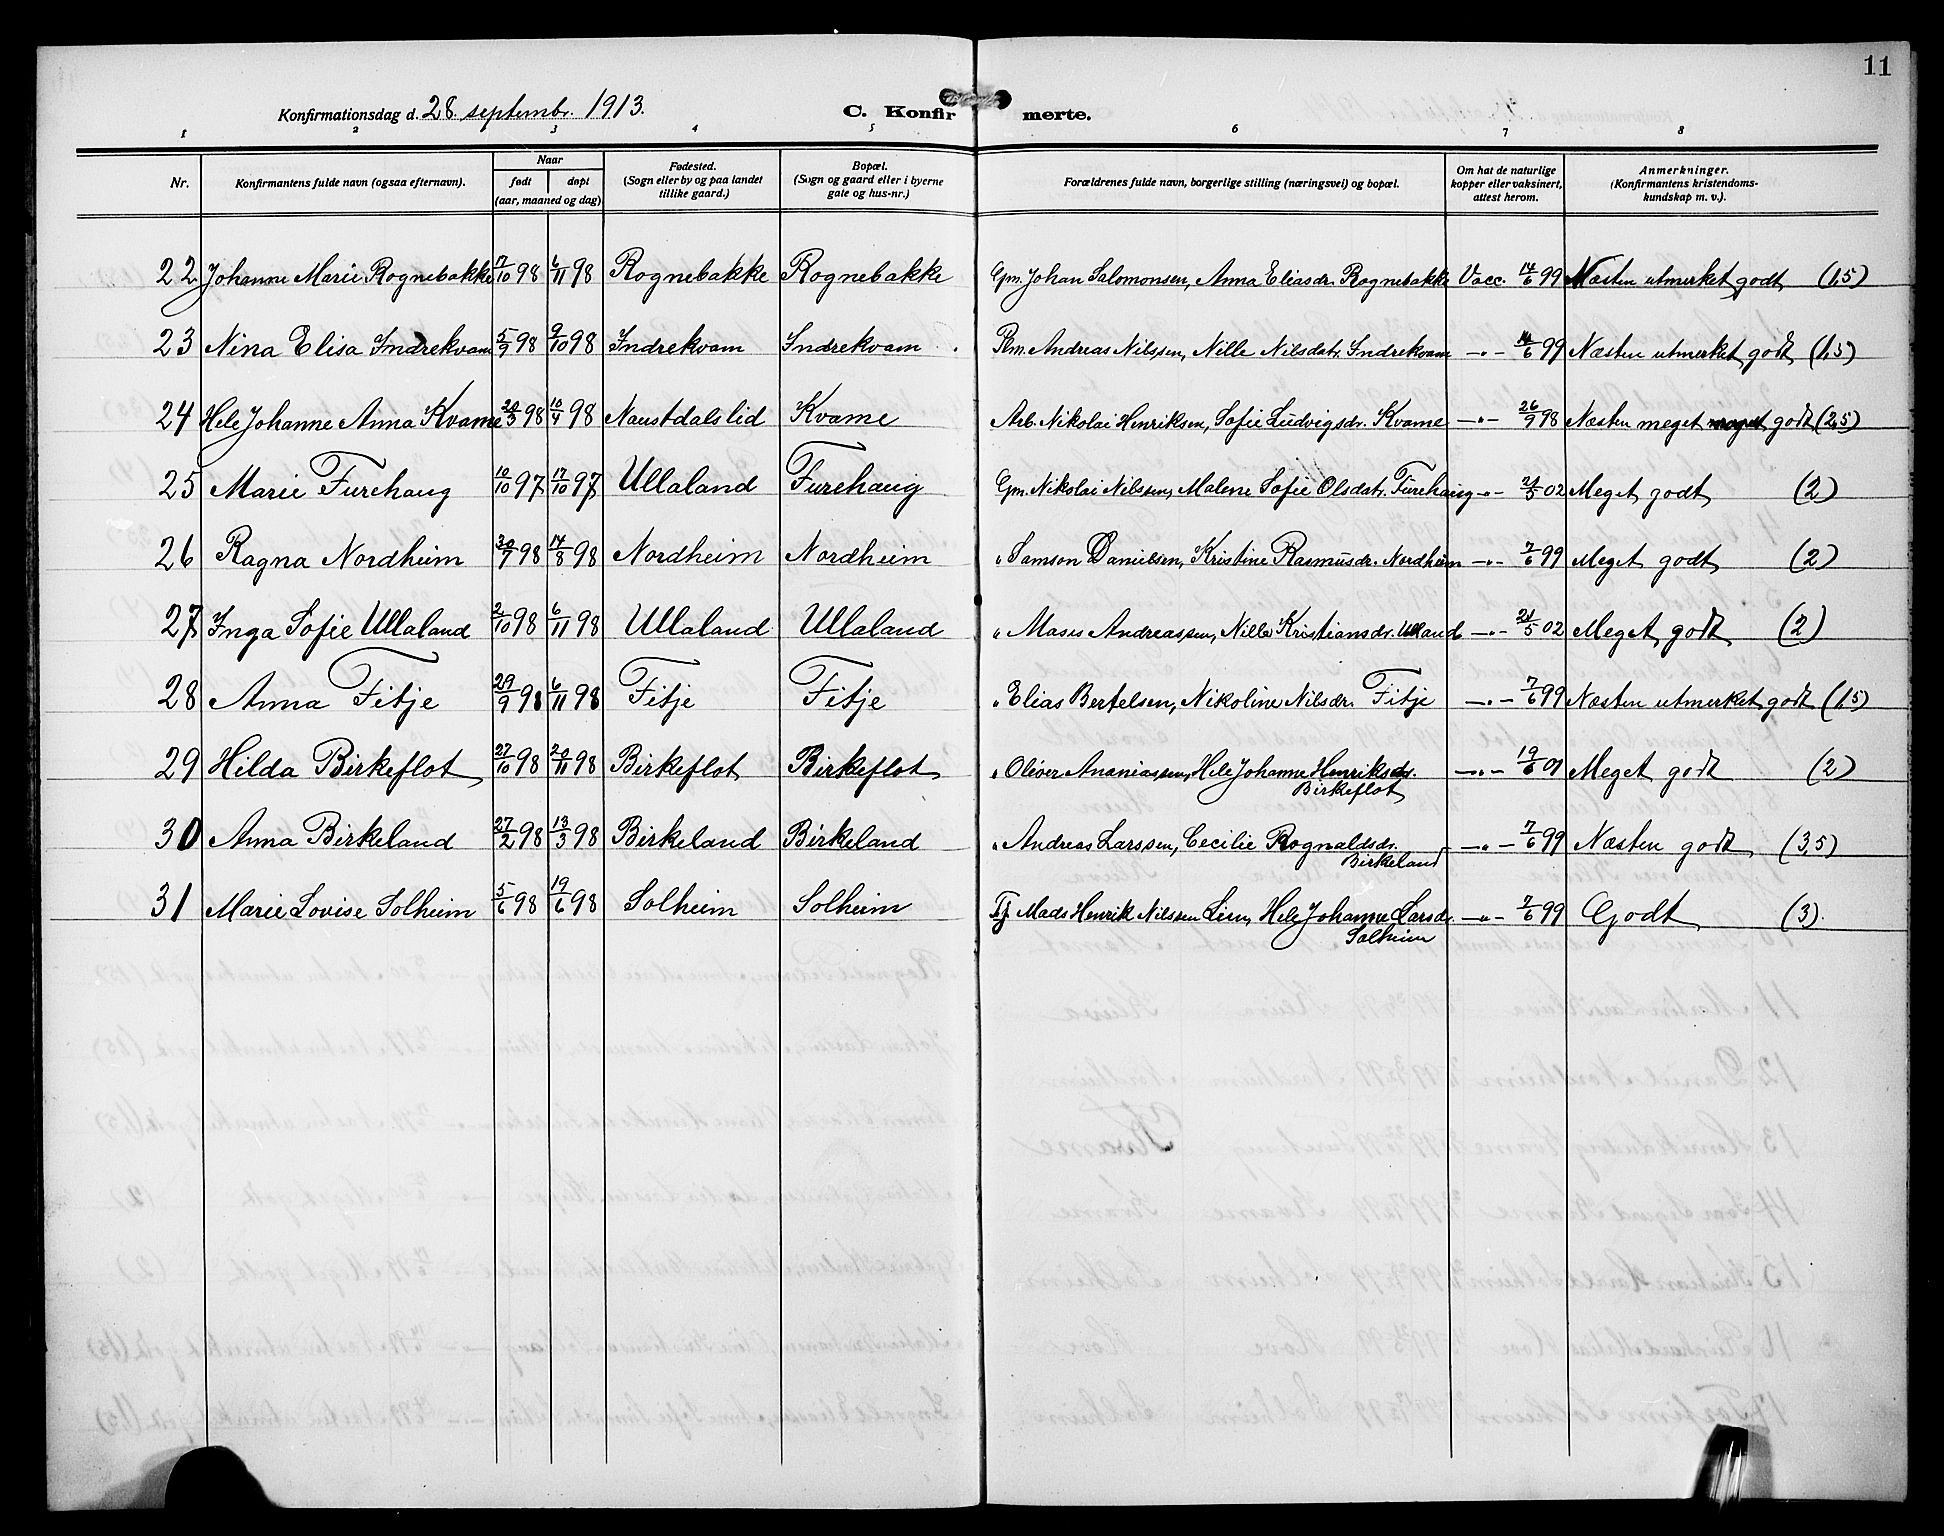 11
Konfirmationsdag d. 28. septembr. 1913. C. Konfirmerte.
1 2 3 4 5 6 7 8
Nr. Konfirmantens fulde navn (ogsaa efternavn). Naar født døpt (aar, maaned og dag) Fødested. (Sogn eller by og paa landet tillike gaard.) Bopæl. (Sogn og gaard eller i byerne gate og hus-nr.) Forældrenes fulde navn, borgerlige stilling (næringsvei) og bopæl. Om hat de naturlige kopper eller vaksinert, attest herom. Anmerkninger. (Konfirmantens kristendomskundskap m. v.).
22 Johanne Marie Rognebakke 7/10 98 6/11 98 Rognebakke Rognebakke Gpm. Johan Salomonsen, Anna Eliasdr. Rognebakke Vacc. 14/6 99 Næsten utmerket godt (1,5)
23 Nina Elisa Indrekvam 5/9 98 9/10 98 Indrekvam Indrekvam Plm. Andreas Nilssen, Nille Nilsdatr. Indrekvam —"— 14/6 99 Næsten utmerket godt (1,5)
24 Hele Johanne Anna Kvame 20/3 98 10/4 98 Naustdalslid Kvame Arb. Nikolai Henriksen, Sofie Ludvigsdr. Kvame —"— 26/9 98 Næsten meget godt (2,5)
25 Marie Furehaug 10/10 97 17/10 97 Ullaland Furehaug Gpm. Nikolai Nilssen, Malene Sofie Olsdatr. Furehaug —"— 21/5 02 Meget godt (2)
26 Ragna Nordheim 30/7 98 14/8 98 Nordheim Nordheim " Samson Danielsen, Kristine Rasmusdr. Nordheim —"— 7/6 99 Meget godt (2)
27 Inga Sofie Ullaland 2/10 98 6/11 98 Ullaland Ullaland " Moses Andreassen, Nille Kristiansdr. Ulland —"— 21/5 02 Meget godt (2)
28 Anna Fitje 29/9 98 6/11 98 Fitje Fitje " Elias Bertelsen, Nikoline Nilsdr. Fitje —"— 7/6 99 Næsten utmerket godt (1,5)
29 Hilda Birkeflot 27/10 98 20/11 98 Birkeflot Birkeflot " Oliver Ananiassen, Hele Johanne Henriksdr. —"— 19/6 01 Meget godt (2)
Birkeflot
30 Anna Birkeland 27/2 98 13/3 98 Birkeland Birkeland " Andreas Larssen, Cecilie Rognaldsdr. —"— 7/6 99 Næsten godt (3,5)
Birkeland
31 Marie Lovise Solheim 5/6 98 19/6 98 Solheim Solheim Tj Mads Henrik Nilssen Lien, Hele Johanne Larsdr. —"— 7/6 99 Godt (3).
Solheim